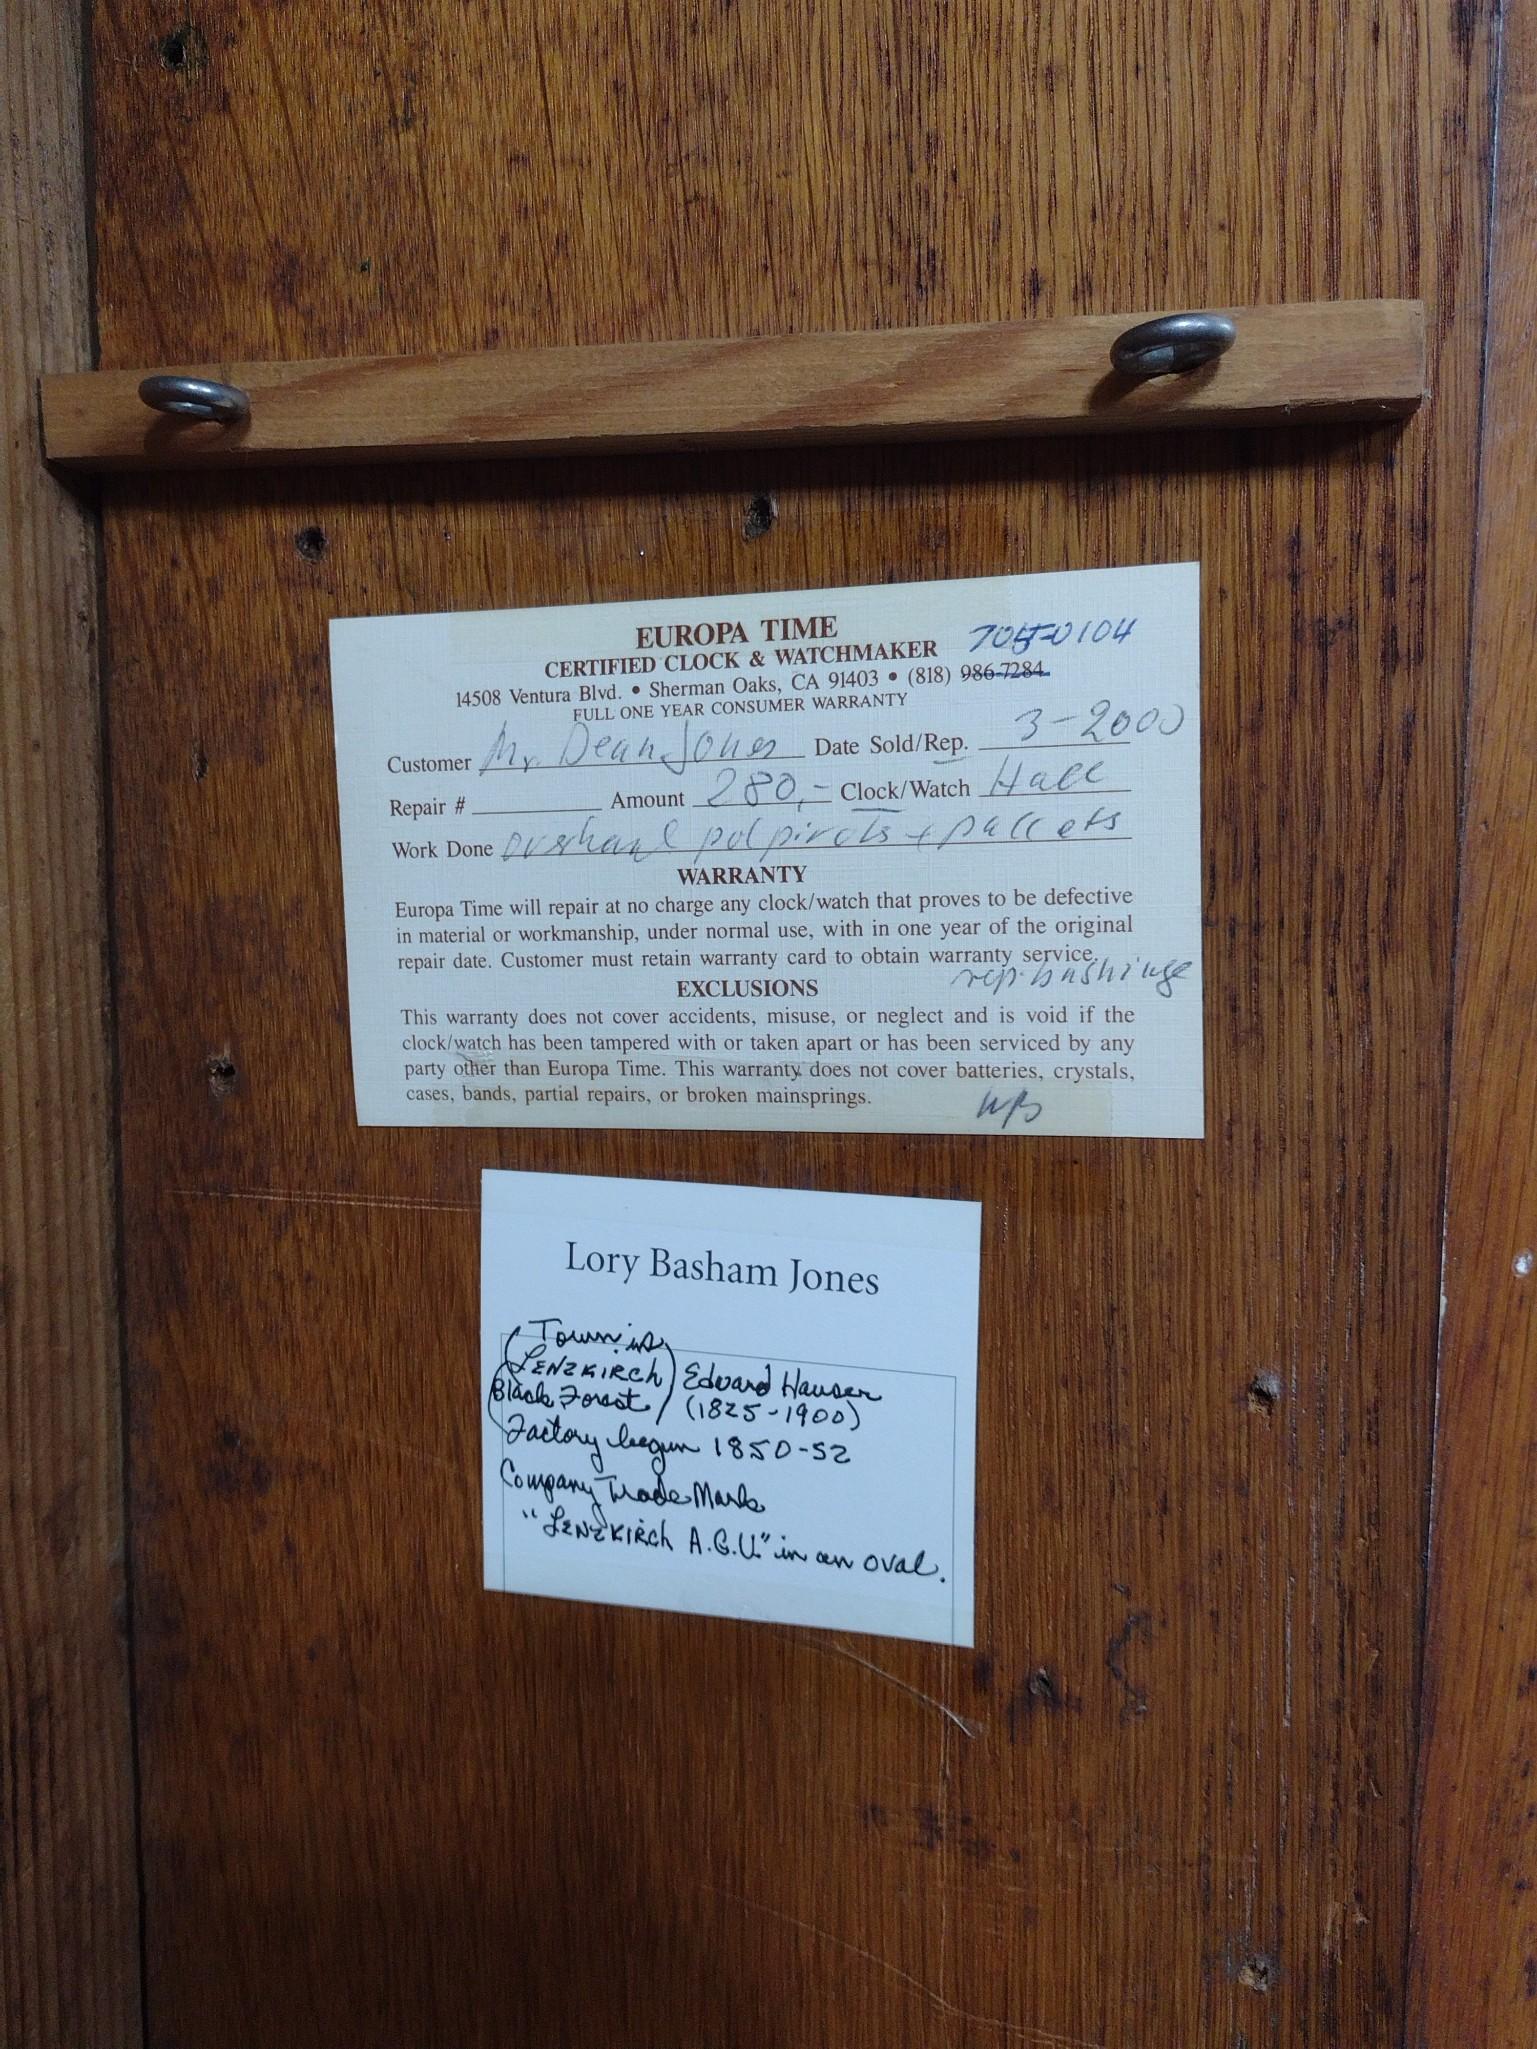 EUROPA TIME
705-0104
CERTIFIED CLOCK & WATCHMAKER
14508 Ventura Blvd. • Sherman Oaks, CA 91403 • (818) 986-7284
FULL ONE YEAR CONSUMER WARRANTY
Customer Mr. Dean Jones Date Sold/Rep. 3-2000
Repair # Amount 280,- Clock/Watch Hall
Work Done overhaul pol pivots + pallets
WARRANTY
Europa Time will repair at no charge any clock/watch that proves to be defective
in material or workmanship, under normal use, with in one year of the original
repair date. Customer must retain warranty card to obtain warranty service.
rep. bushings
EXCLUSIONS
This warranty does not cover accidents, misuse, or neglect and is void if the
clock/watch has been tampered with or taken apart or has been serviced by any
party other than Europa Time. This warranty does not cover batteries, crystals,
cases, bands, partial repairs, or broken mainsprings.
Lory Basham Jones
(Town is
LENZKIRCH
Black Forest)
Eduard Hauser
(1825-1900)
Factory begun 1850-52
Company Trade Mark
"LENZKIRCH A.G.U." in an oval.